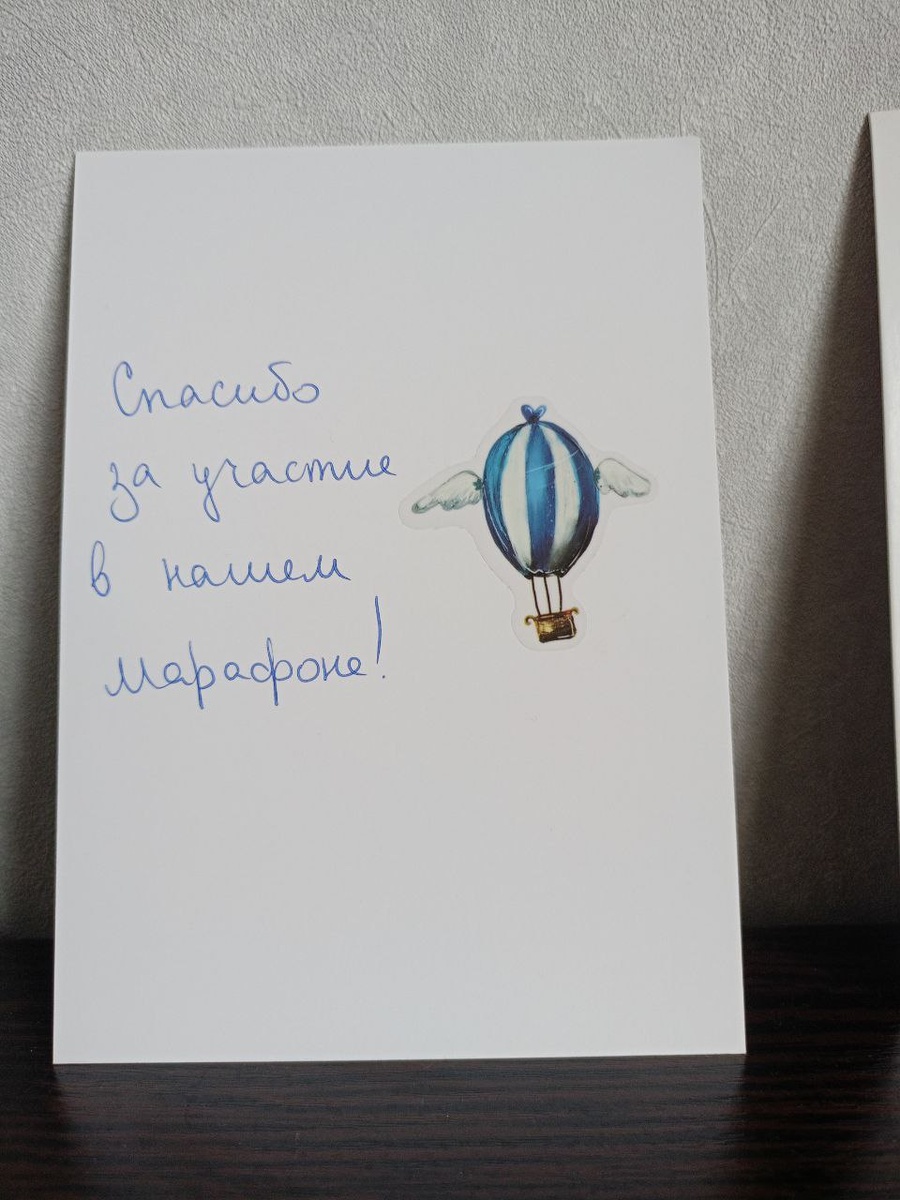 Спасибо
за участие
в нашем
марафоне!